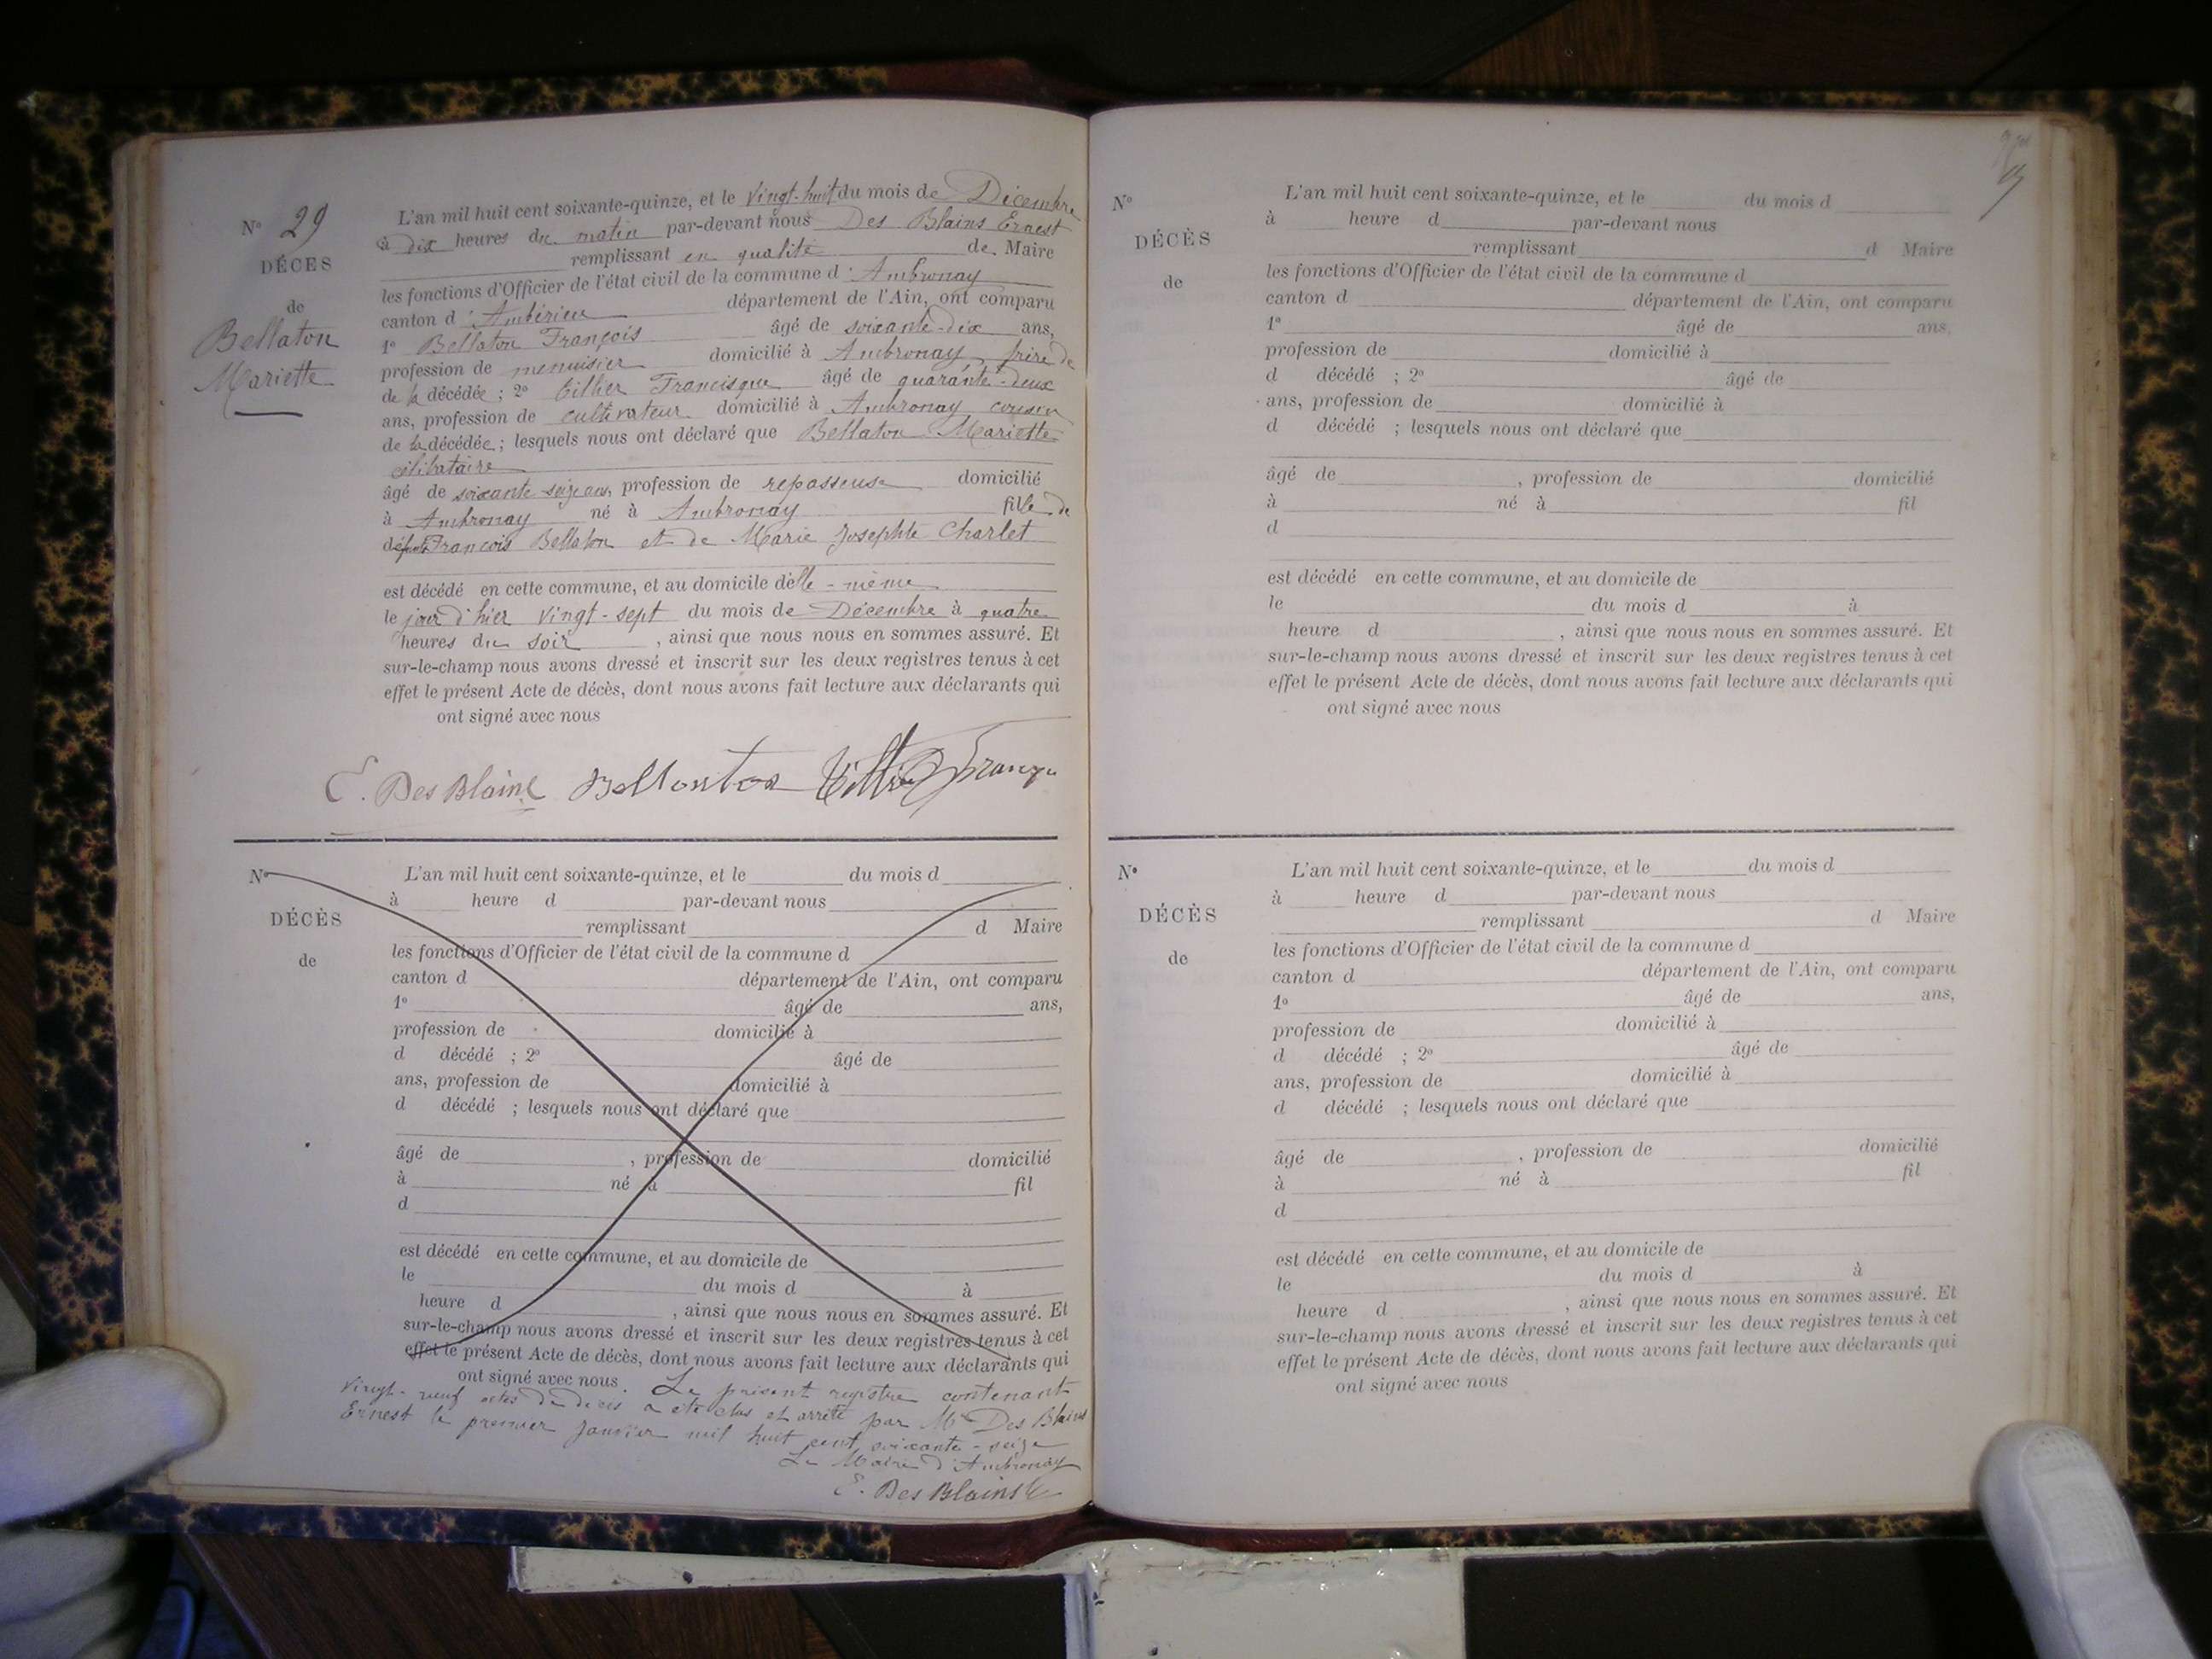 N° 29
DÉCÈS
de
Bellaton
Mariette
L'an mil huit cent soixante-quinze, et le vingt-huit du mois de Décembre
à dix heures du matin par-devant nous Des Blains Ernest
remplissant en qualité de Maire
les fonctions d'Officier de l'état civil de la commune d'Ambronay
canton d'Ambérieu département de l'Ain, ont comparu
1° Bellaton François âgé de soixante-dix ans,
profession de menuisier domicilié à Ambronay, frère de
de la décédée ; 2° Tillier Francisque âgé de quarante-deux
ans, profession de cultivateur domicilié à Ambronay cousin
de la décédée ; lesquels nous ont déclaré que Bellaton Mariette
célibataire
âgé de soixante-seize ans, profession de repasseuse domicilié
à Ambronay né à Ambronay fille de
défunts François Bellaton et de Marie Josephte Charlet
est décédé en cette commune, et au domicile d'elle-même
le jour d'hier vingt-sept du mois de Décembre à quatre
heures du soir, ainsi que nous nous en sommes assuré. Et
sur-le-champ nous avons dressé et inscrit sur les deux registres tenus à cet
effet le présent Acte de décès, dont nous avons fait lecture aux déclarants qui
ont signé avec nous
E. Des Blains Bellaton
N°
DÉCÈS
de
L'an mil huit cent soixante-quinze, et le du mois d
à heure d par-devant nous
remplissant d Maire
les fonctions d'Officier de l'état civil de la commune d
canton d département de l'Ain, ont comparu
1° âgé de ans,
profession de domicilié à
d décédé ; 2° âgé de
ans, profession de domicilié à
d décédé ; lesquels nous ont déclaré que
âgé de , profession de domicilié
à né à fil
d
est décédé en cette commune, et au domicile de
le du mois d à
heure d , ainsi que nous nous en sommes assuré. Et
sur-le-champ nous avons dressé et inscrit sur les deux registres tenus à cet
effet le présent Acte de décès, dont nous avons fait lecture aux déclarants qui
ont signé avec nous. Le présent registre contenant
vingt-neuf actes de décès a été clos et arrêté par Mr Des Blains
Ernest le premier Janvier mil huit cent soixante-seize
Le Maire d'Ambronay
E. Des Blains
N°
DÉCÈS
de
L'an mil huit cent soixante-quinze, et le du mois d
à heure d par-devant nous
remplissant d Maire
les fonctions d'Officier de l'état civil de la commune d
canton d département de l'Ain, ont comparu
1° âgé de ans,
profession de domicilié à
d décédé ; 2° âgé de
ans, profession de domicilié à
d décédé ; lesquels nous ont déclaré que
âgé de , profession de domicilié
à né à fil
d
est décédé en cette commune, et au domicile de
le du mois d à
heure d , ainsi que nous nous en sommes assuré. Et
sur-le-champ nous avons dressé et inscrit sur les deux registres tenus à cet
effet le présent Acte de décès, dont nous avons fait lecture aux déclarants qui
ont signé avec nous
N°
DÉCÈS
de
L'an mil huit cent soixante-quinze, et le du mois d
à heure d par-devant nous
remplissant d Maire
les fonctions d'Officier de l'état civil de la commune d
canton d département de l'Ain, ont comparu
1° âgé de ans,
profession de domicilié à
d décédé ; 2° âgé de
ans, profession de domicilié à
d décédé ; lesquels nous ont déclaré que
âgé de , profession de domicilié
à né à fil
d
est décédé en cette commune, et au domicile de
le du mois d à
heure d , ainsi que nous nous en sommes assuré. Et
sur-le-champ nous avons dressé et inscrit sur les deux registres tenus à cet
effet le présent Acte de décès, dont nous avons fait lecture aux déclarants qui
ont signé avec nous